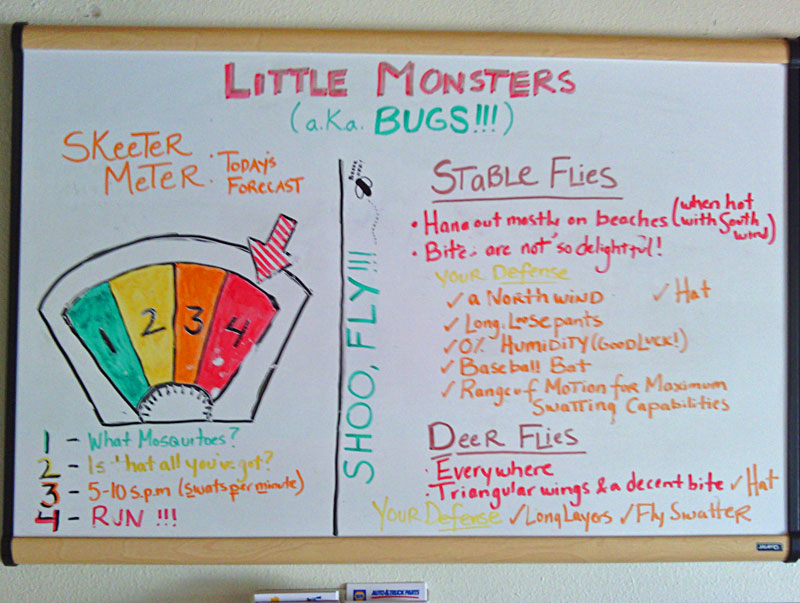 LITTLE MONSTERS
(a.K.a. BUGS!!!)
SKeeTeR
MeTeR:
TODAY'S
FORECAST
1
2
3
4
1 - What Mosquitoes?
2 - Is that all you've got?
3 - 5-10 s.p.m (swats per minute)
4 - RUN !!!
SHOO, FLY!!!
STaBLe FLies
• Hang out mostly on beaches (when hot with South wind)
• Bites are not so delightful!
YOUR Defense
✓ a NORTH WIND ✓ Hat
✓ Long, Loose pants
✓ 0% HUMiDiTY (GOOD LUCK!)
✓ Baseball Bat
✓ Range of Motion for Maximum
Swatting Capabilities
DeeR FLies
• Everywhere
• Triangular wings & a decent bite ✓ Hat
YOUR Defense ✓ Long Layers ✓ Fly SwatteR
Quartet
NAPA
AUTO & TRUCK PARTS